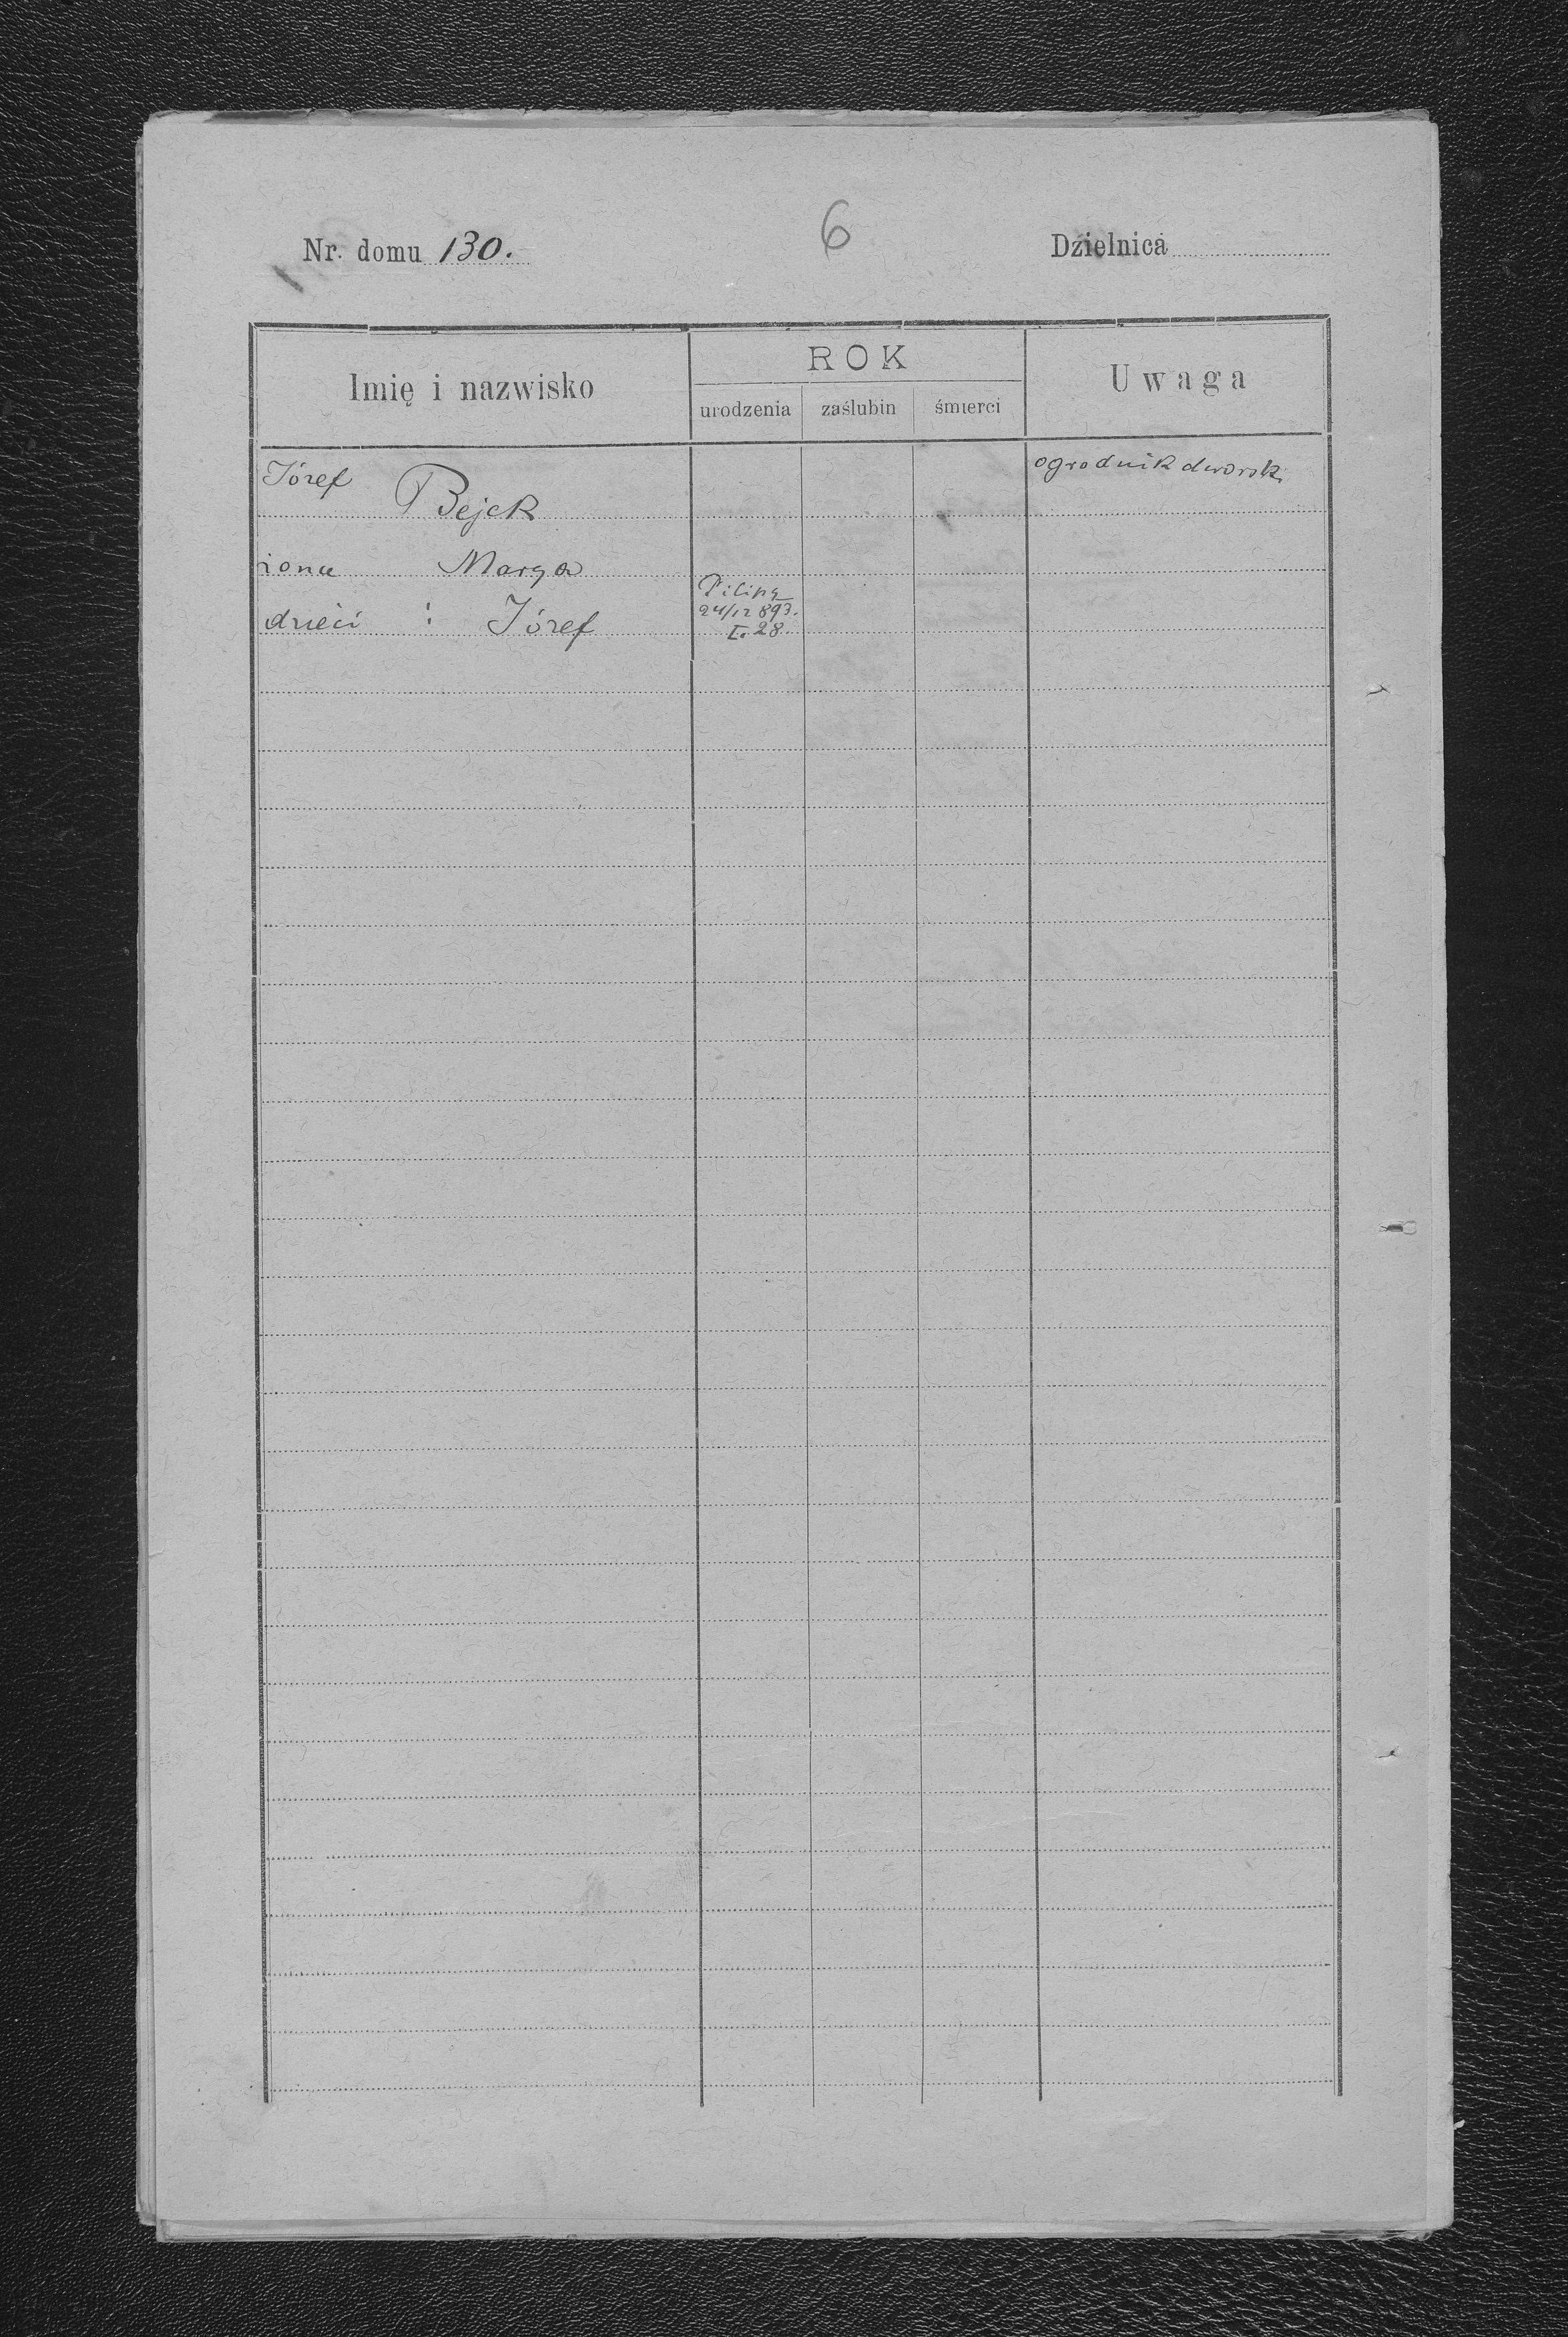 Nr. domu 130.
6
Dzielnica
Imię i nazwisko
ROK
Uwaga
urodzenia
zaślubin
śmierci
Józef
Bejck
ogrodnik dworski
żona Marya
dzieci : Józef
24/12 893.
I. 28.